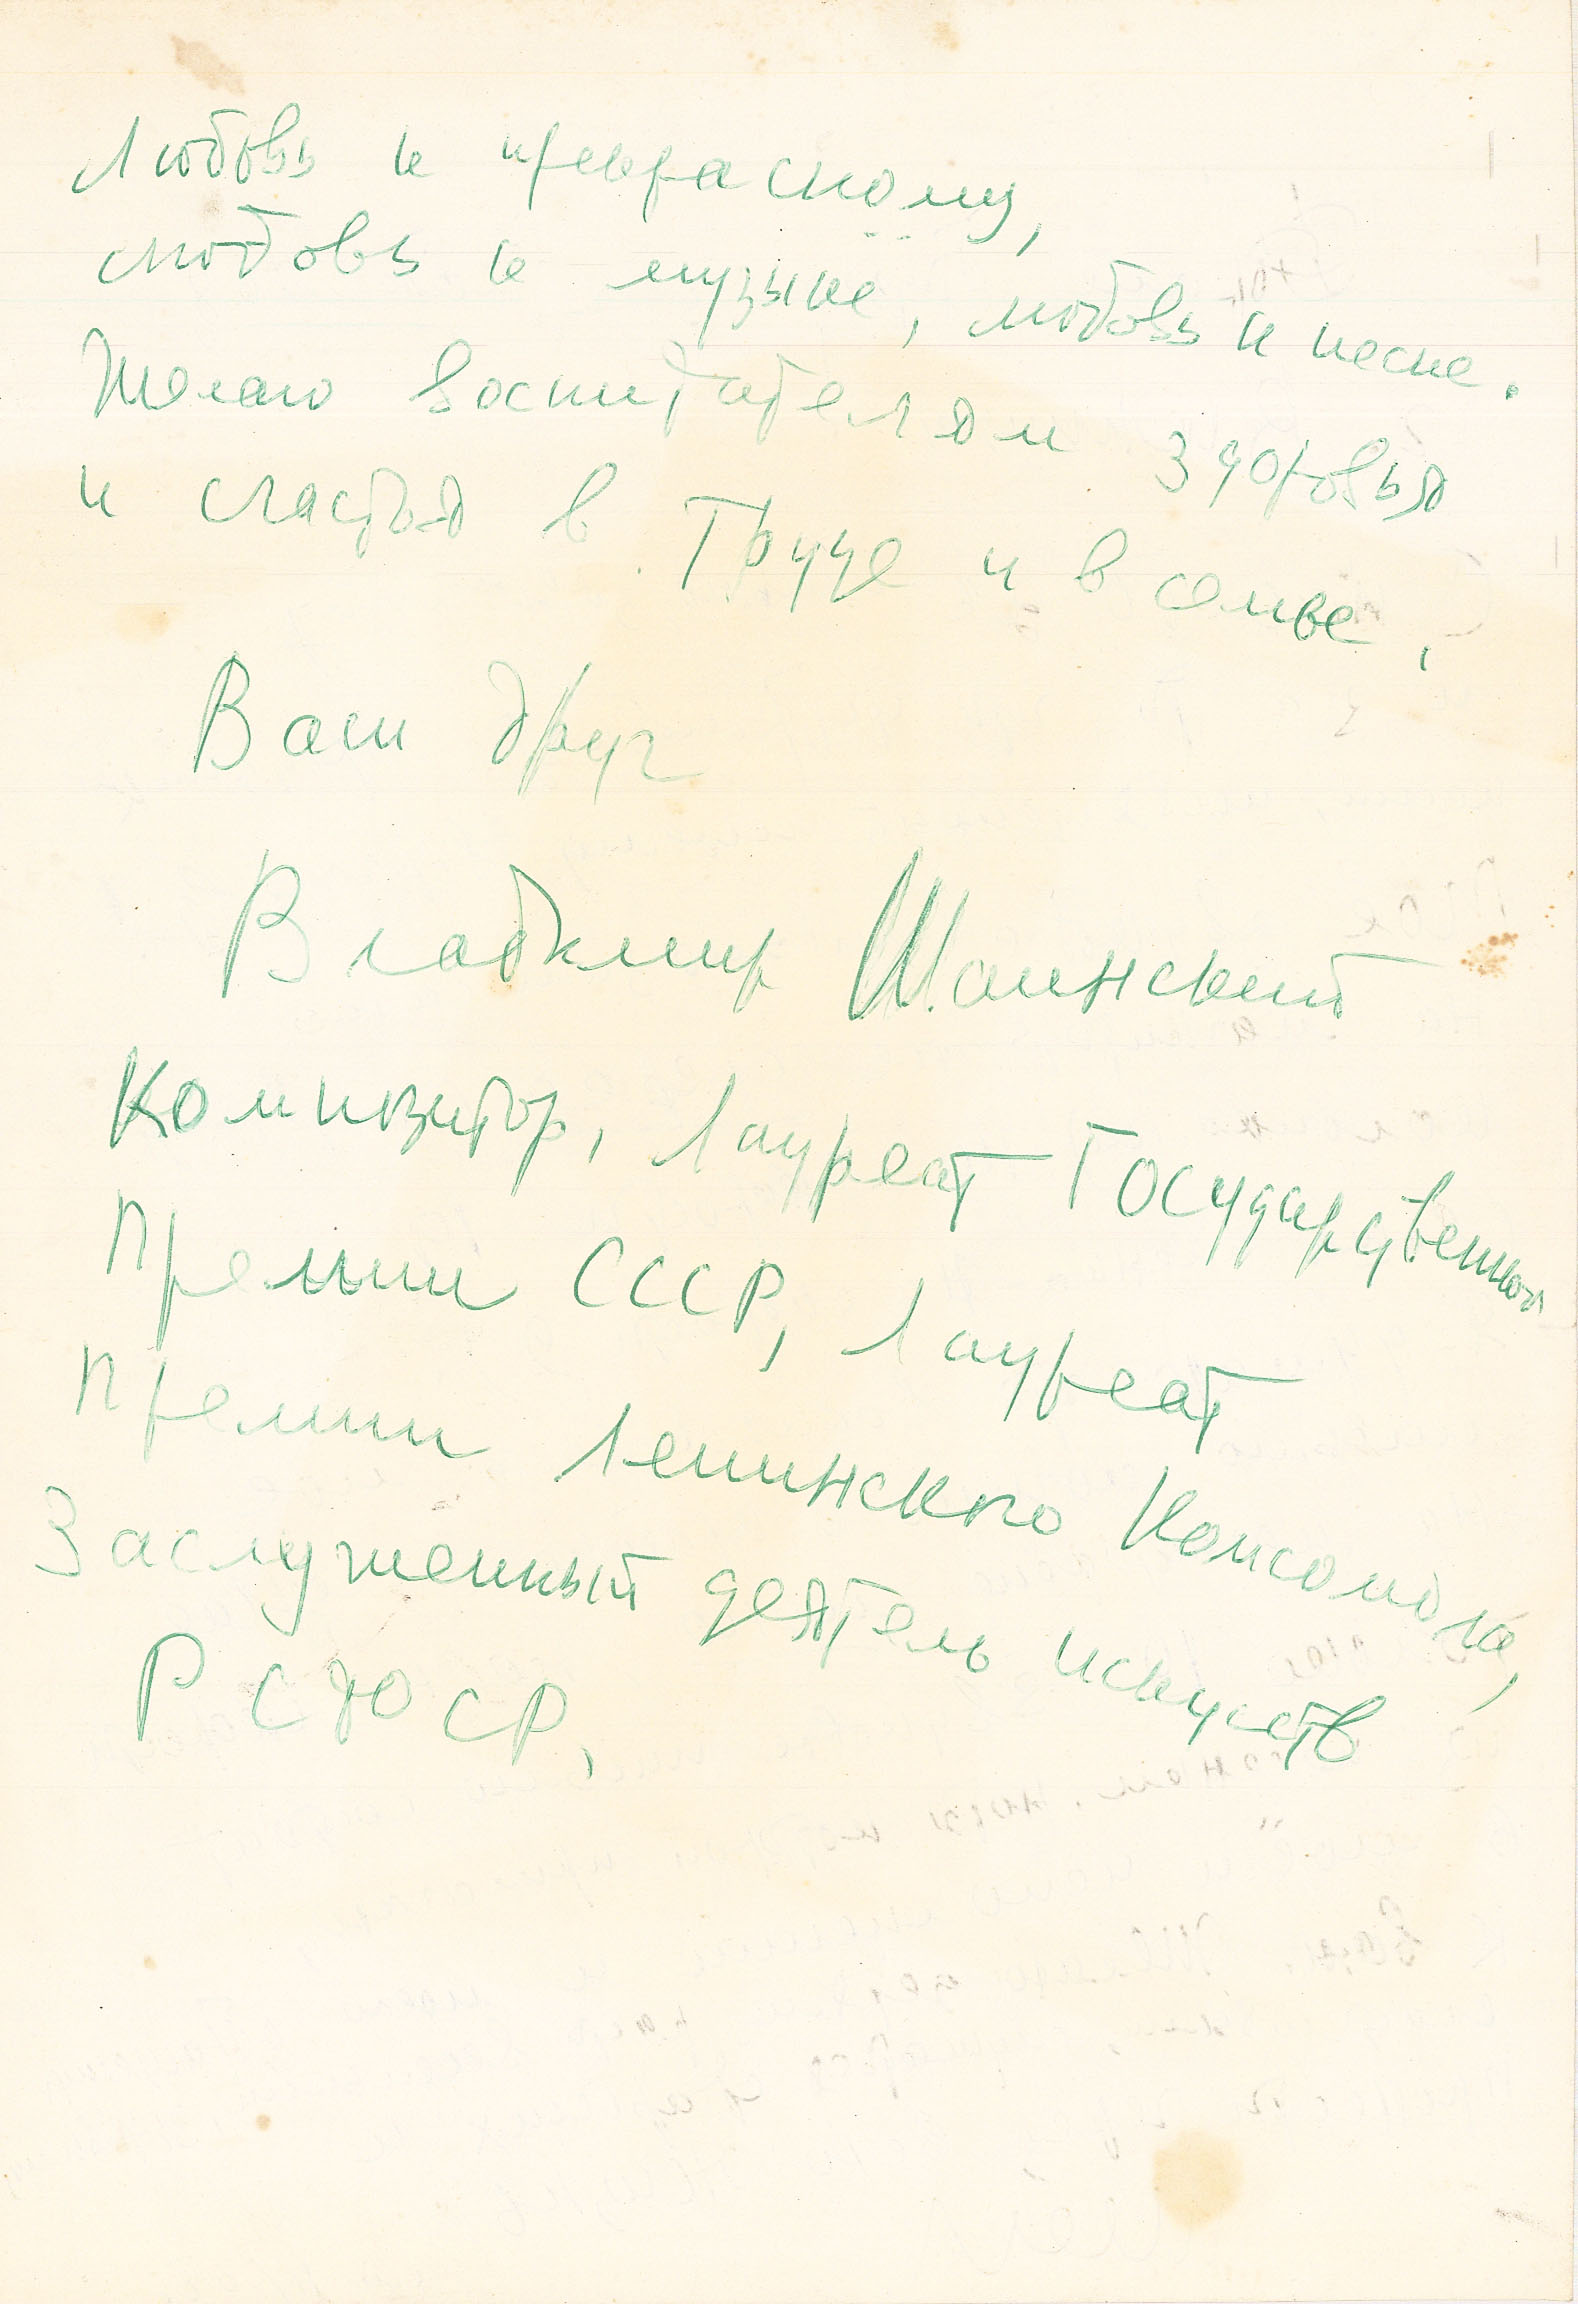 любовь к прекрасному,
любовь к музыке, любовь к песне.
Желаю воспитателям здоровья
и счастья в труде и в семье.
Ваш друг
Владимир Шаинский
Композитор, Лауреат Государственной
Премии СССР, Лауреат
Премии Ленинского Комсомола,
Заслуженный деятель искусств
РСФСР.